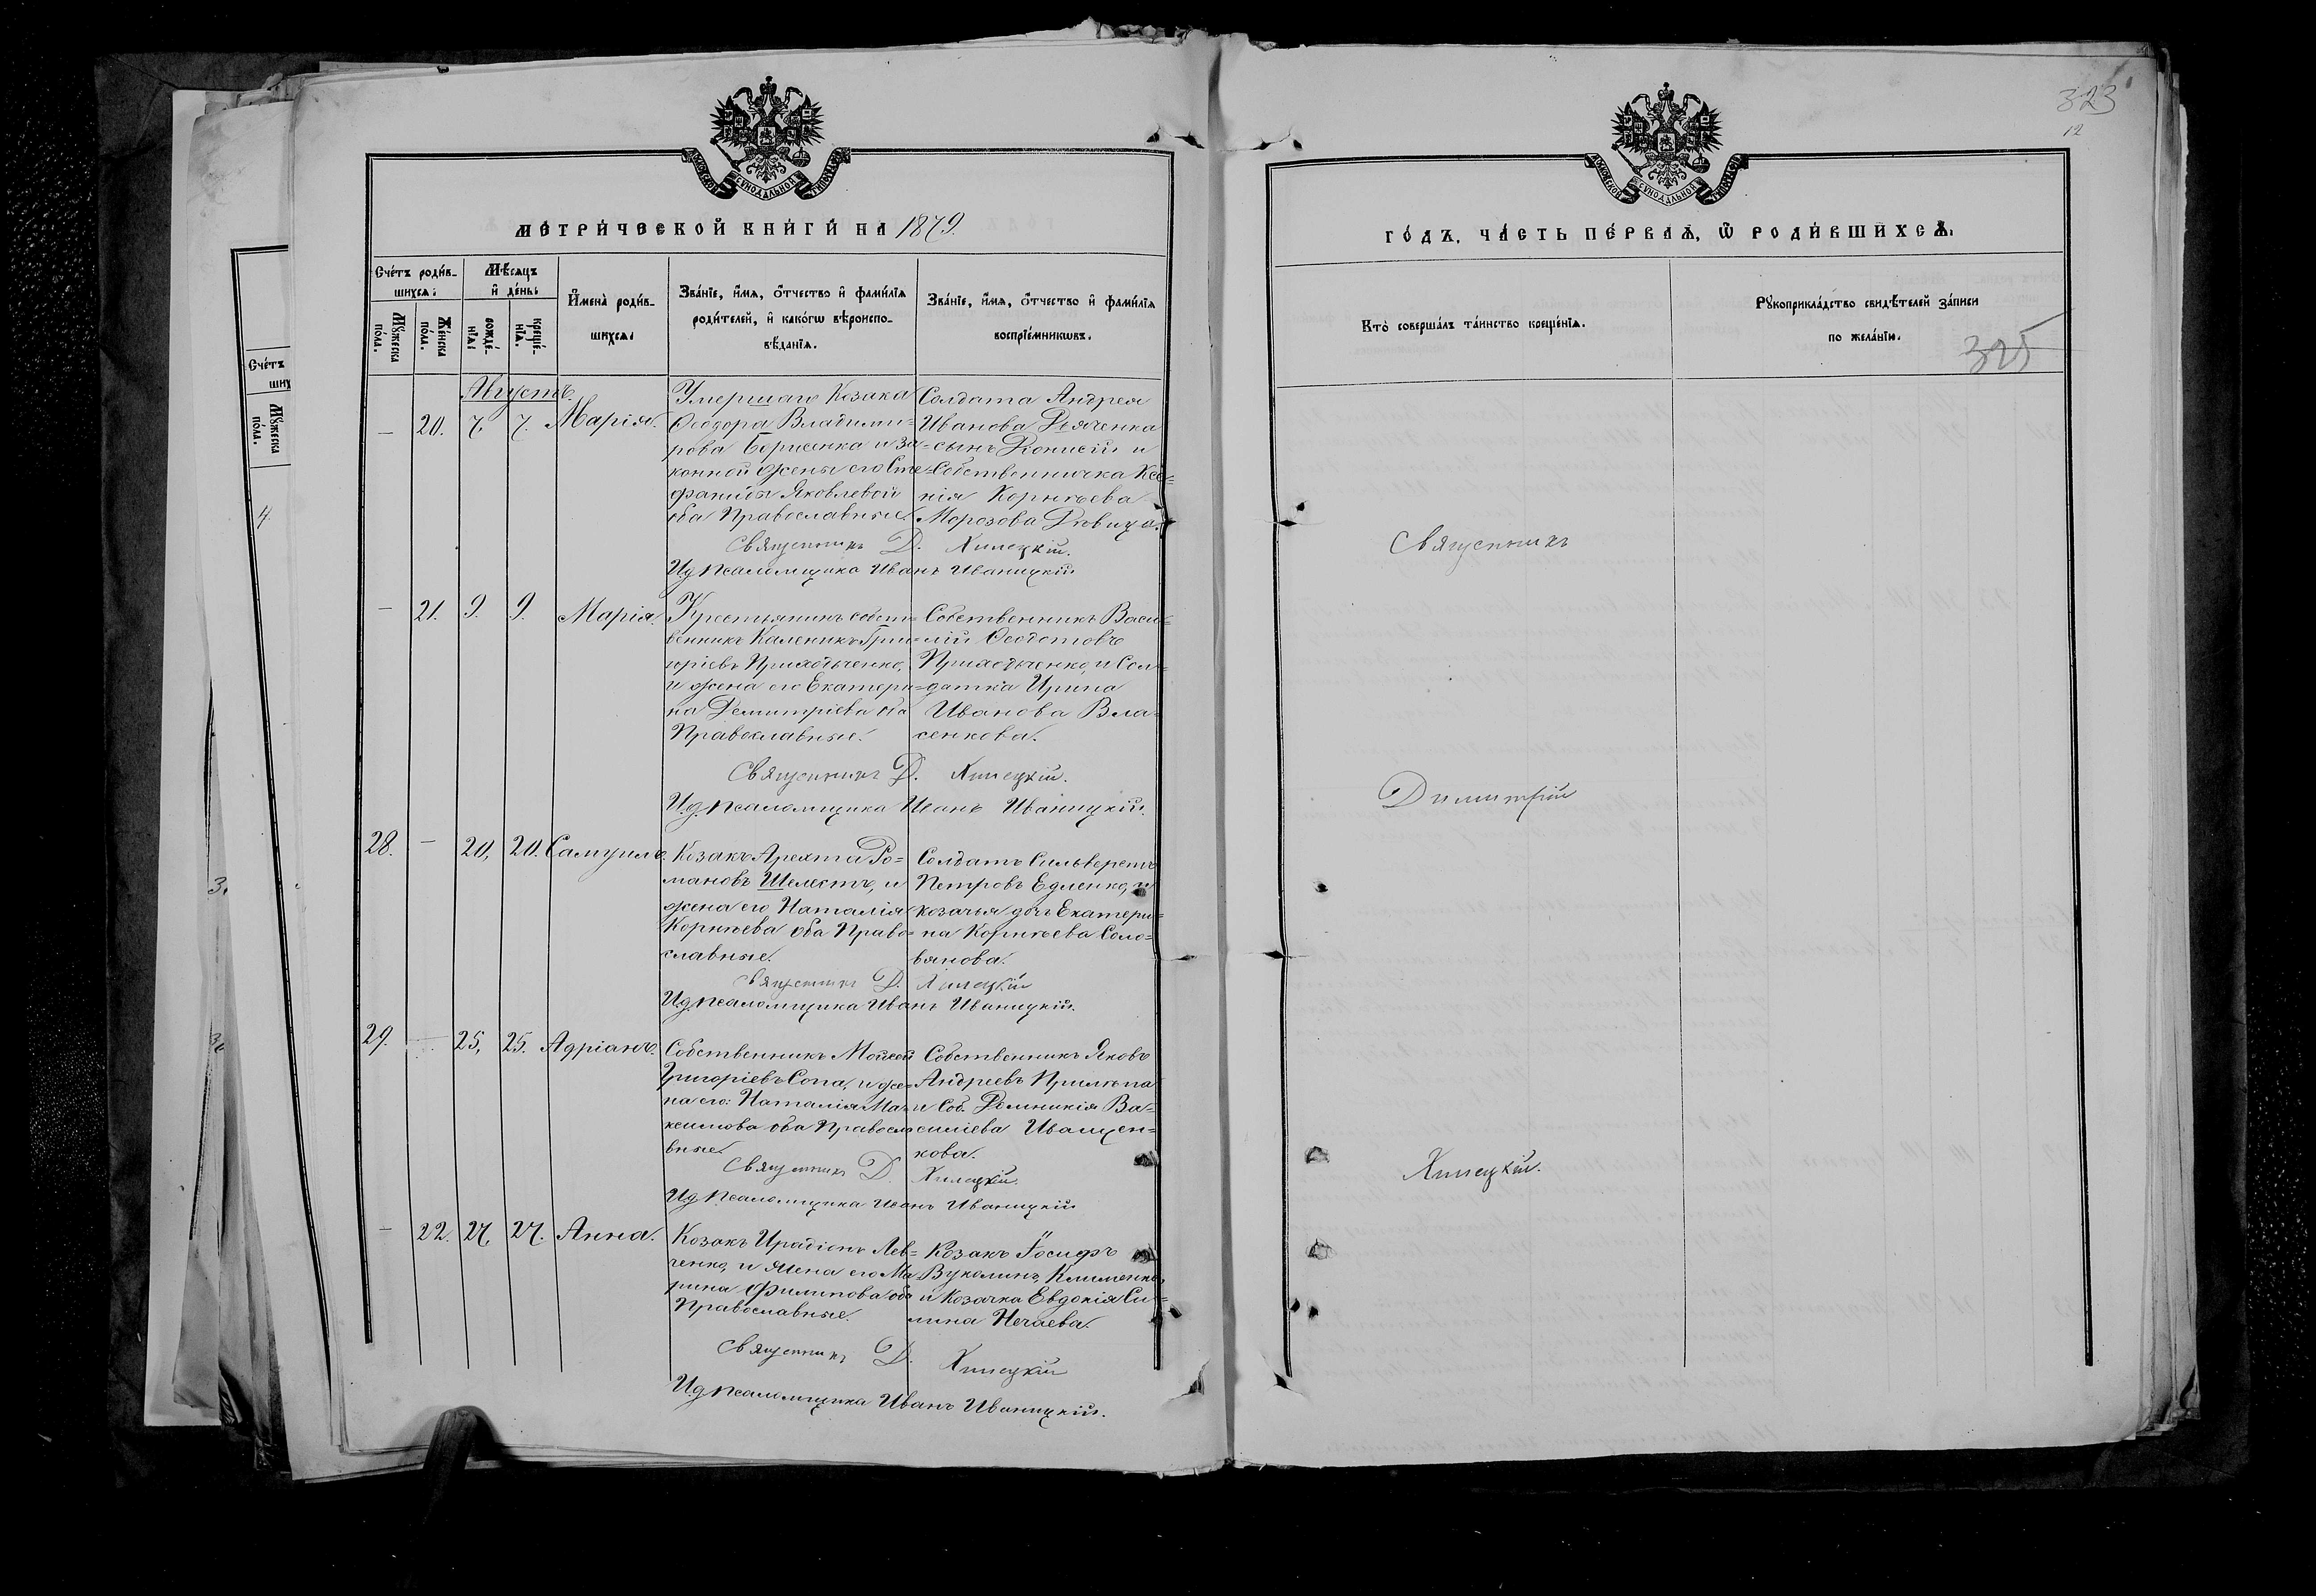 МЕТРИЧЕСКОЙ КНИГИ НА 1879.
Счетъ родив-
шихся:
Мѣсяцъ
и день:
Имена родив-
шихся:
Званіе, имя, отчество и фамилія
родителей, и какогω вѣроиспо-
вѣданія.
Званіе, имя, отчество и фамилія
воспріемникωвъ.
Мужеска
пола.
Женска
пола.
рожде-
нія:
креще-
нія.
Августъ.
— 20. 7. 7. Марія.
Умершаго Козака
Ѳеодора Владими-
рова Борисенка и за-
конной жены его Сте-
фаниды Яковлевой
оба Православные.
Солдата Андрея
Иванова Дяченка
сынъ Діонисій и
Собственничка Ксе-
нія Корнѣева
Морозова Вдовица.
Священникъ Д.
И.д. псаломщика Иванъ Иваницкій
— 21. 9. 9. Марія.
Крестьянинъ собст-
венникъ Каленикъ Гри-
горіевъ Приходьченко,
и жена его Екатери-
на Демитріева оба
Православные.
Собственникъ Васи-
лій Ѳеодотовъ
Приходьченко, и Сол-
датка Ирина
Иванова Вла-
сенкова.
Священникъ Д.
И.д. псаломщика Иванъ Иваницкій.
28. — 20. 20. Самуилъ.
Козакъ Арехта Ро-
мановъ Шелестъ, и
жена его Наталія
Корнѣева оба Право-
славные.
Солдатъ Сильверстъ
Петровъ Едленко, и
козачья дочь Екатери-
на Корнѣева Соло-
вянова.
Священникъ Д.
И.д. псаломщика Иванъ Иваницкій.
29. — 25. 25. Адріанъ.
Собственникъ Мойсей
Григоріевъ Сопа, и же-
на его: Наталія Ма-
ксимова оба Правосла
вные.
Собственникъ Яковъ
Андреевъ Прилѣпа
и Соб. Домникія Ва-
силіева Иващен-
кова.
Священникъ Д.
И.д. псаломщика Иванъ Иваницкій
— 22. 27. 27. Анна.
Козакъ Иродіонъ Лев-
ченко, и жена его Ма-
рина Филипова оба
Православные.
Козакъ Іосифъ
Вуколинъ, Клименко,
и Козачка Евдокія Си-
лина Нечаева.
Священникъ Д.
И.д. псаломщика Иванъ Иваницкій.
323
12
ГОДЪ, ЧАСТЬ ПЕРВАЯ, Ѡ РОДИВШИХСЯ.
Кто совершалъ таинство крещенія.
Рукоприкладство свидѣтелей записи
по желанію.
325
Священникъ
Димитрій
Счетъ
ших
Мужеска
пола.
4.